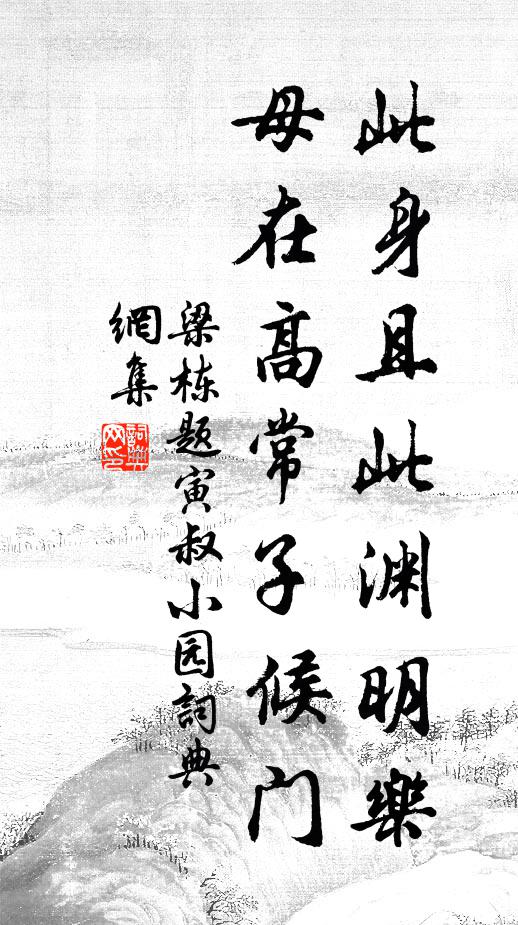 此身且此渊明樂
毋在高常子候门
梁栋题寅叔小园詞典
網集